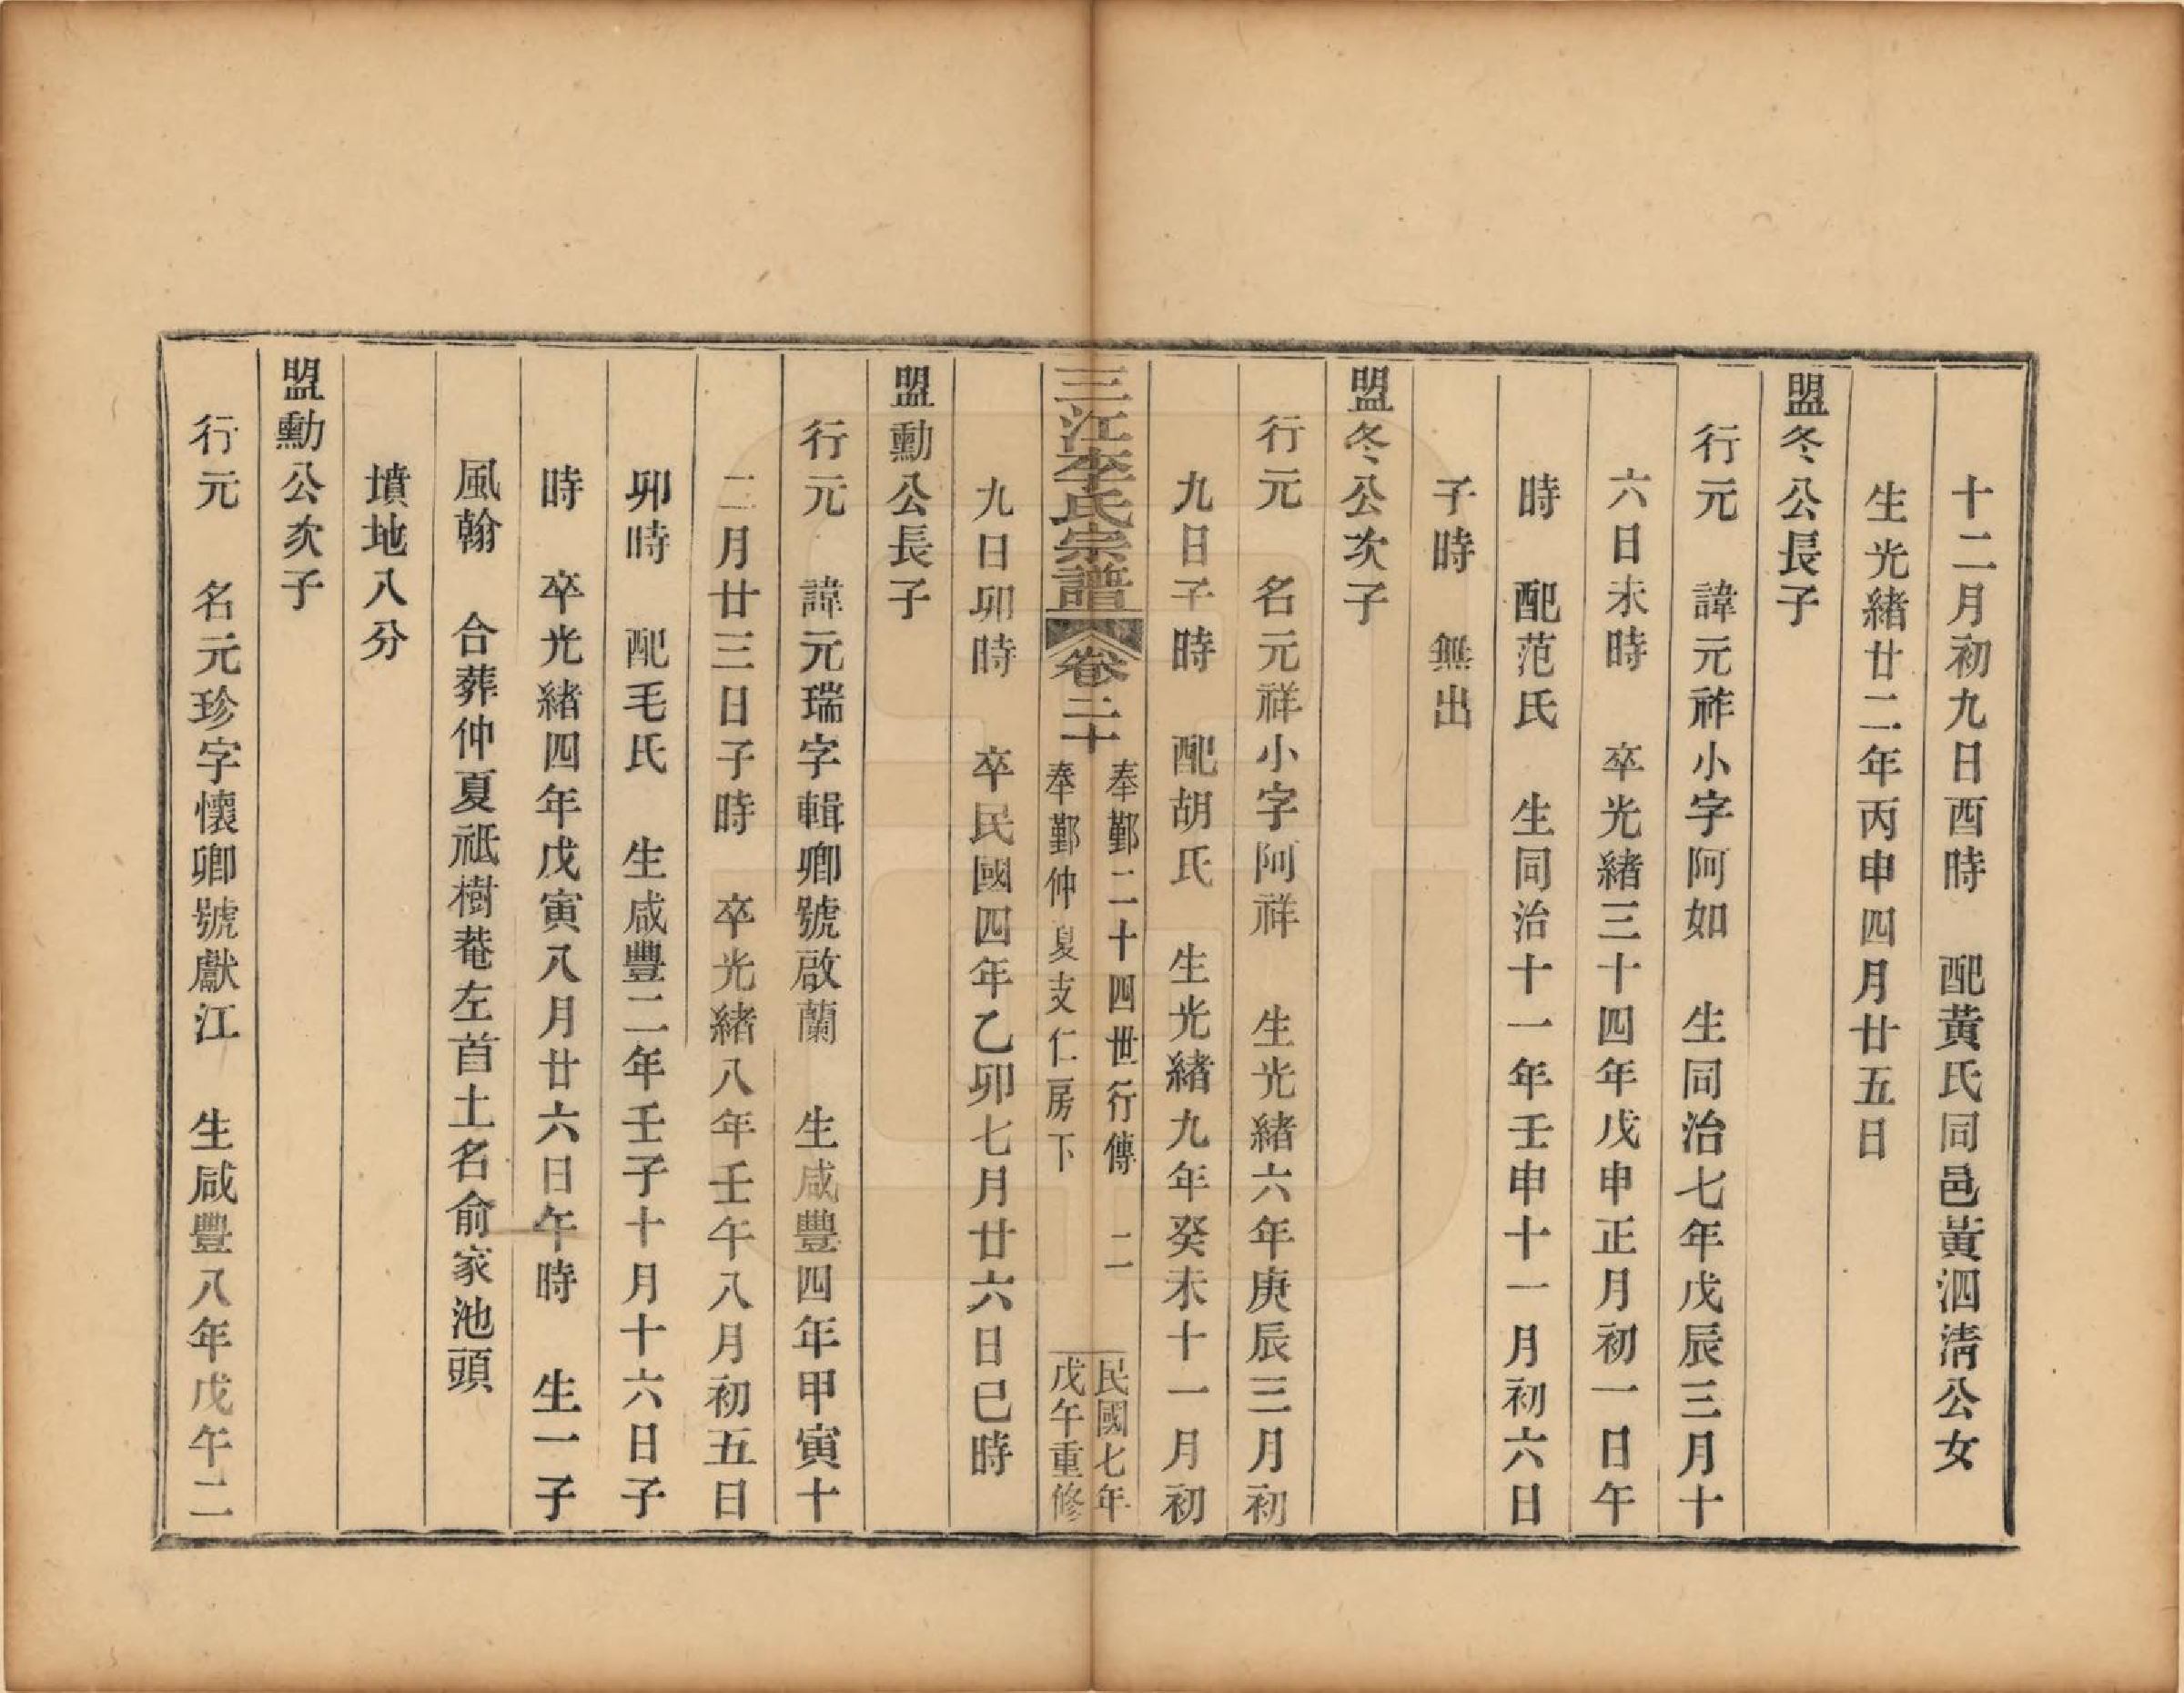 十二月初九日酉時　配黃氏同邑黃泗淸公女
生光緖廿二年丙申四月廿五日
盟冬公長子
行元　諱元祚小字阿如　生同治七年戊辰三月十
六日未時　卒光緖三十四年戊申正月初一日午
時　配范氏　生同治十一年壬申十一月初六日
子時　無出
盟冬公次子
行元　名元祥小字阿祥　生光緖六年庚辰三月初
九日子時　配胡氏　生光緖九年癸未十一月初
三江李氏宗譜
卷二十
奉鄞二十四世行傳　二
奉鄞仲夏支仁房下
民國七年
戊午重修
九日卯時　卒民國四年乙卯七月廿六日巳時
盟勳公長子
行元　諱元瑞字輯卿號啟蘭　生咸豐四年甲寅十
二月廿三日子時　卒光緖八年壬午八月初五日
卯時　配毛氏　生咸豐二年壬子十月十六日子
時　卒光緖四年戊寅八月廿六日午時　生一子
風翰　合葬仲夏祇樹菴左首土名俞家池頭
墳地八分
盟勳公次子
行元　名元珍字懷卿號獻江　生咸豐八年戊午二